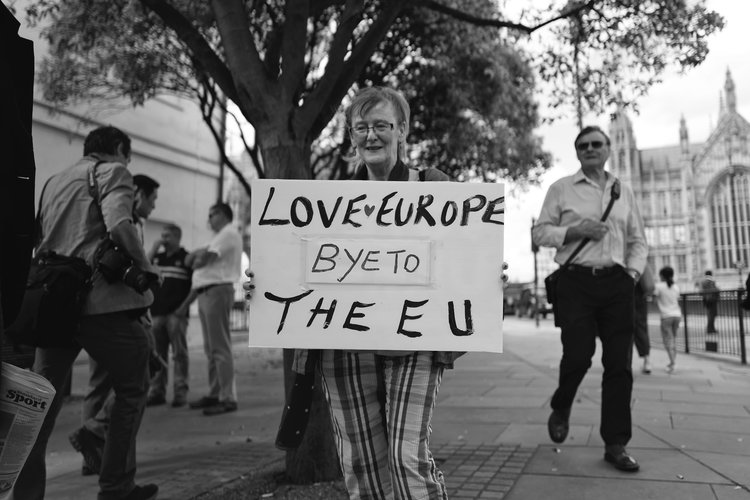 LOVE♥EUROPE
BYE TO
THE EU
Sport